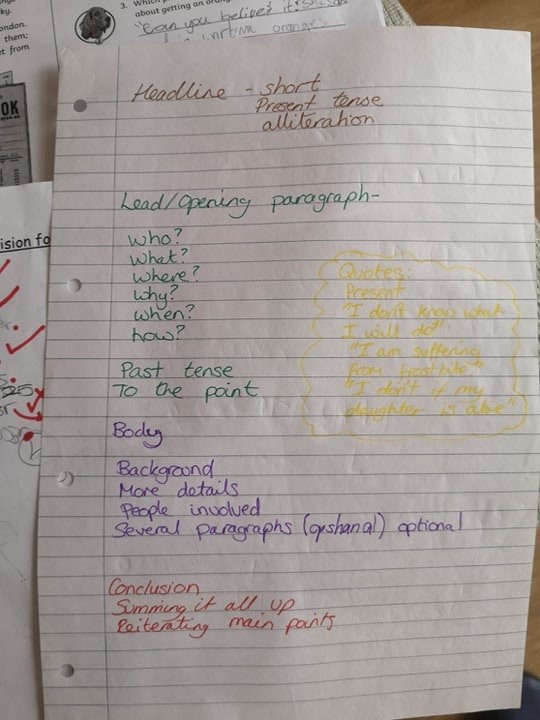 3. Which
about getting an oran
"Can you believe it
in wartime oranges
ky.
ondon.
them;
et from
OK
ision fo
Headline - short
Present tense
alliteration
Lead/Opening paragraph-
who?
What?
where?
why?
when?
how?
Past tense
To the point
Quotes:
Present
"I don't know what
I will do"
"I am suffering
from frostbite"
"I don't if my
daughter is alive"
Body
Background
More details
People involved
Several paragraphs (opshanal) optional
Conclusion
Summing it all up
Reiterating main points